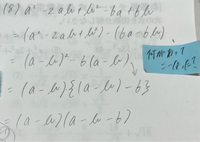 (8) a² - 2ab + b² - 6a + 6b
= (a² - 2ab + b²) - (6a - 6b)
= (a - b)² - 6(a - b)
= (a - b){(a - b) - 6}
= (a - b)(a - b - 6)